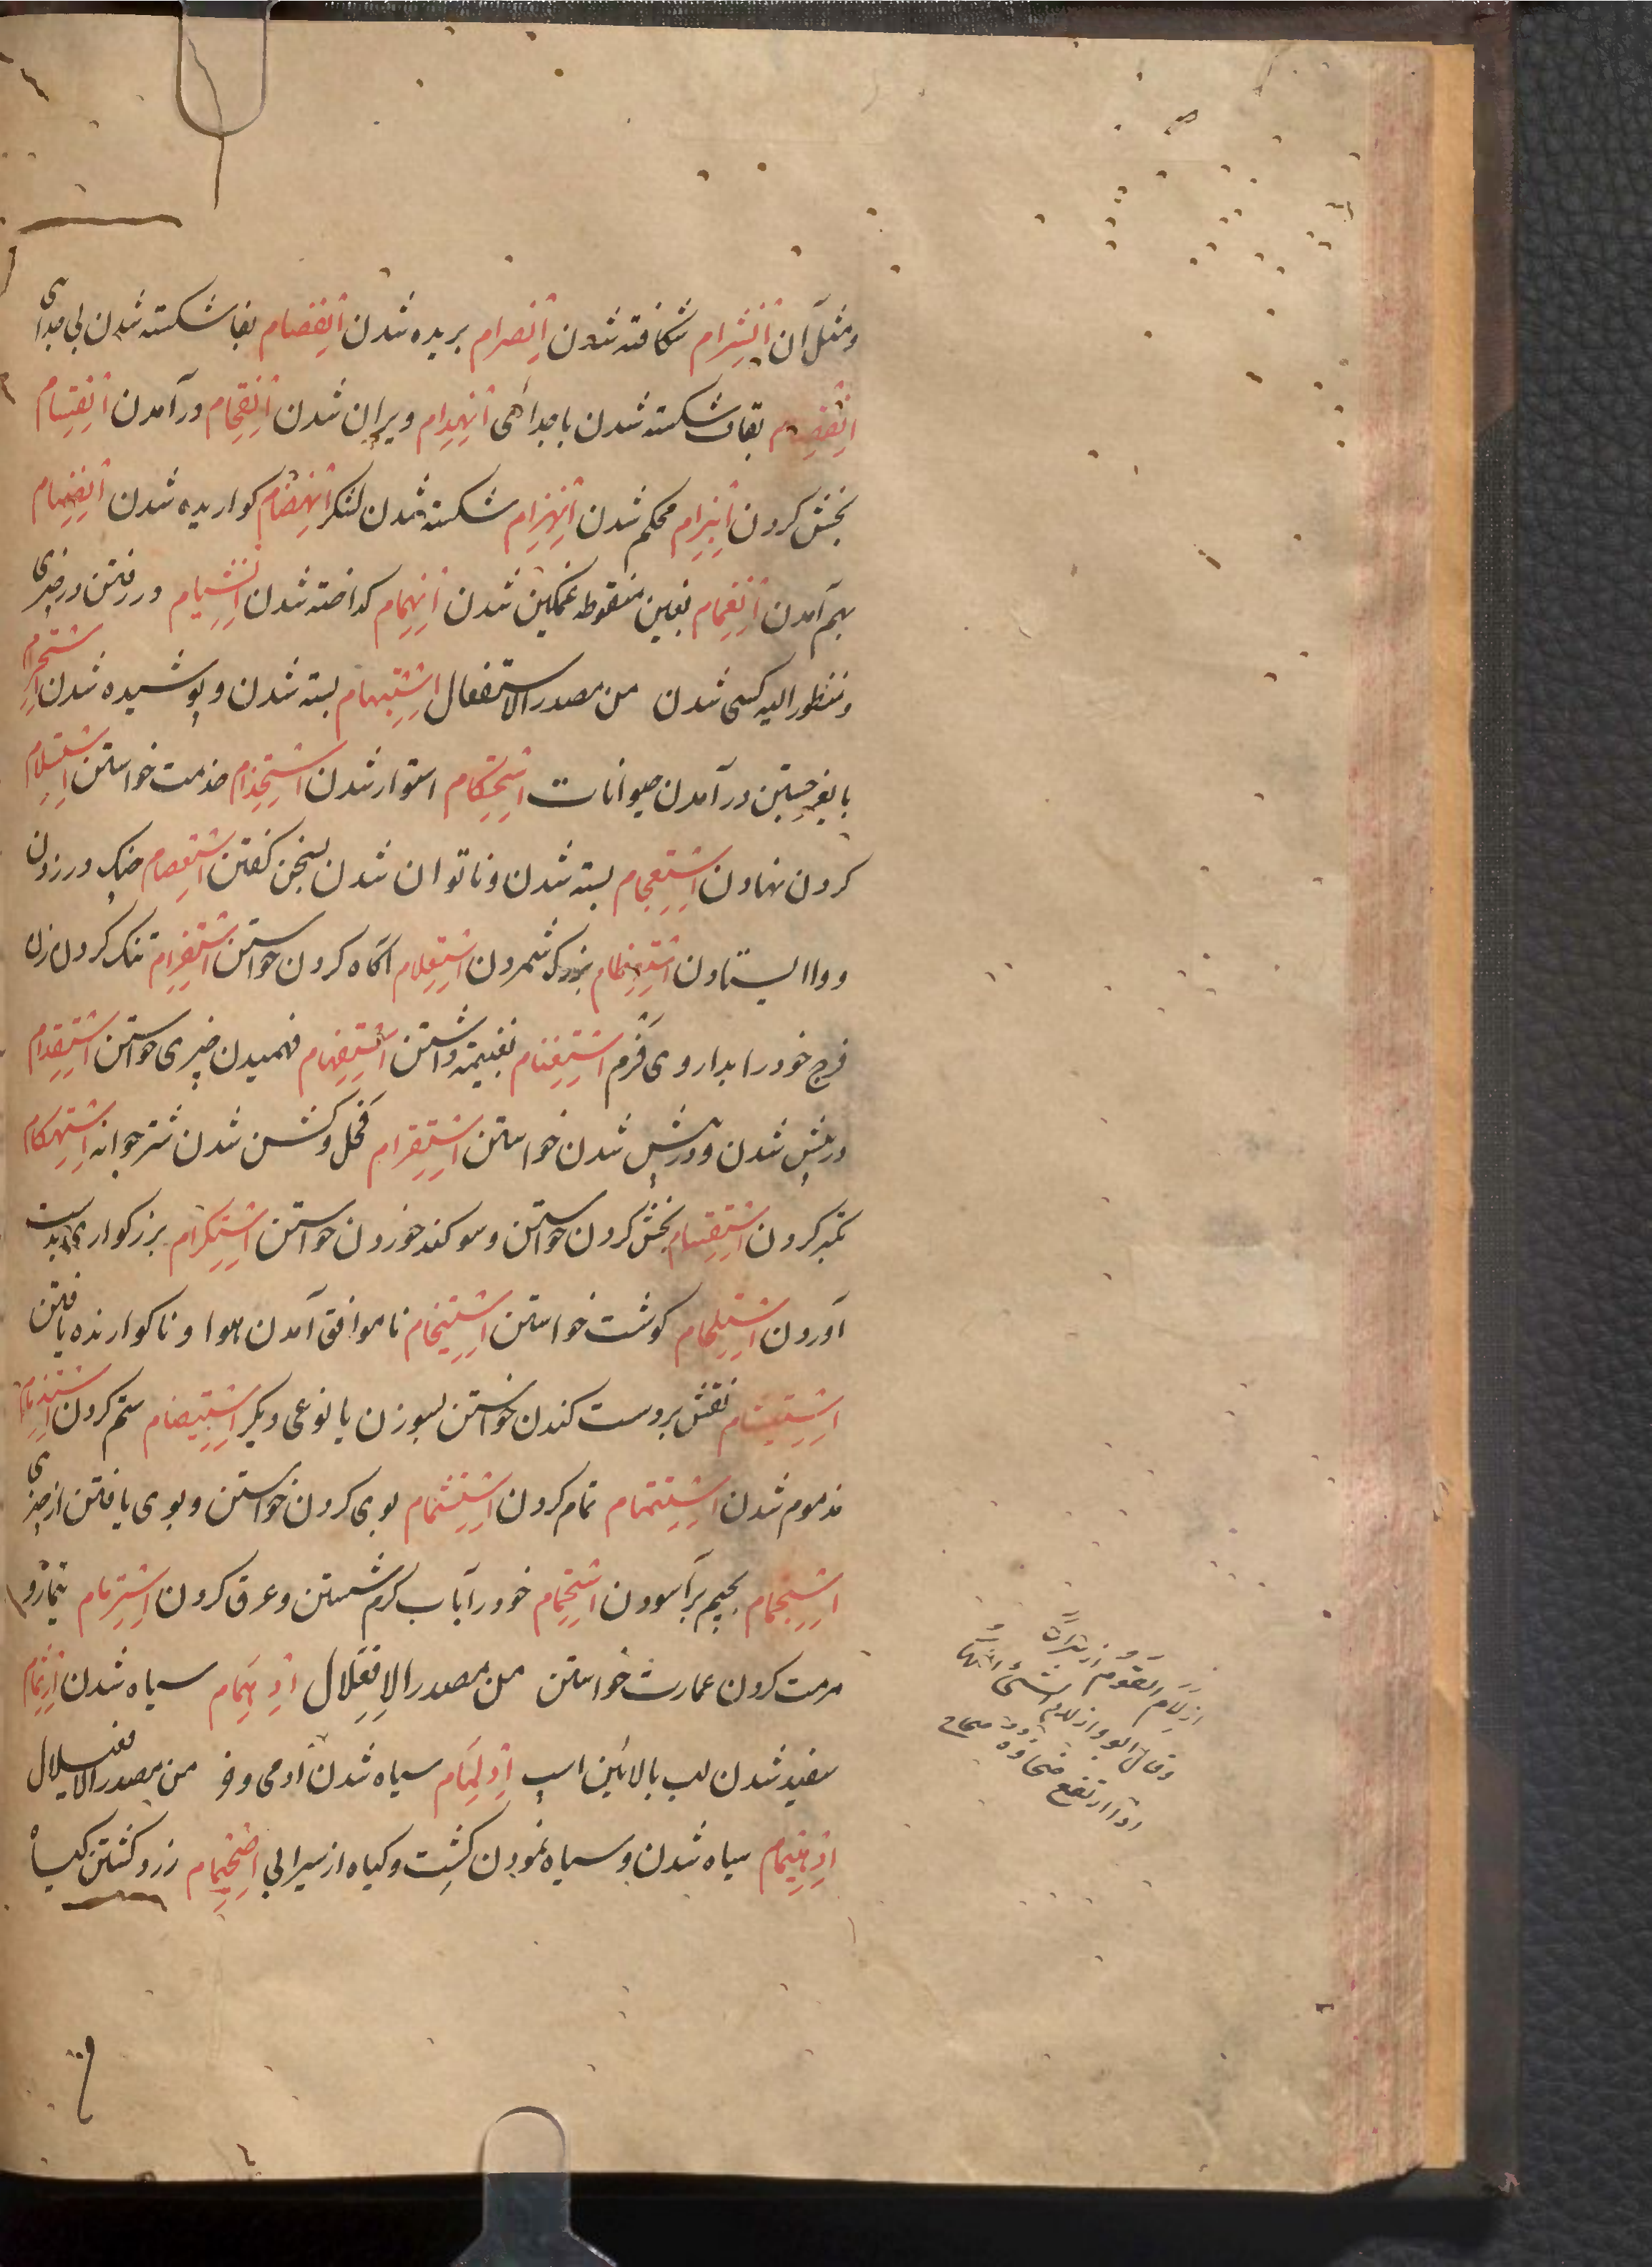 ومثل آن اِنْشِرام شکافته شدن اِنْصِرام بریده شدن اِنْفِصام بفا شکسته شدن بی جدای
اِنْقِصام بقاف شکسته شدن با جدائی اِنْهِدام ویران شدن اِنْقِحام درآمدن اِنْقِسام
بخش کردن اِنْبِرام محکم شدن اِنْهِزام شکسته شدن لشکر اِنْهِضام کواریده شدن اِنْضِمام
بهم آمدن اِنْغِمام بغین منقوطه غمکین شدن اِنْهِمام کداخته شدن اِنْشِیام در رفتن در چیزی
ومنظور الیه کسی شدن من مصدر الاستفعال اِسْتِبْهام بسته شدن و پوشیده شدن اِسْتِحْرام
درآمدن حیوانات اِسْتِحْکام استوار شدن اِسْتِخْدام خدمت خواستن اِسْتِسْلام
کردن نهادن اِسْتِعْجام بسته شدن و ناتوان شدن بسخن کفتن اِسْتِعْصام چنک در زدن
و وا ایستادن اِسْتِعْظام بزرک شمردن اِسْتِعْلام آکاه کردن خواستن اِسْتِفْرام تنک کردن زن
فرج خود را بداروی فَرْم اِسْتِغْنام بغنیمة داشتن اِسْتِفْهام فهمیدن چیزی خواستن اِسْتِقْدام
در پیش شدن و در پیش شدن خواستن اِسْتِقْرام فحل و کشن شدن شتر جوانه اِسْتِهْکام
تکبر کردن اِسْتِقْسام بخش کردن خواستن و سوکند خوردن خواستن اِسْتِکْرام بزرکواری بدست
آوردن اِسْتِلْحام کوشت خواستن اِسْتِیخام ناموافق آمدن هوا و ناکوارنده یافتن
اِسْتِیشام نقش بر دست کندن خواستن بسوزن یا نوعی دیکر اِسْتِیضام ستم کردن اِسْتِذْمام
مذموم شدن اِسْتِتْمام تمام کردن اِسْتِشْمام بوی کردن خواستن و بوی یافتن از چیزی
اِسْتِجْمام بجیم برآسودن اِسْتِحْمام خود را بآب کرم شستن و عرق کردن اِسْتِرْمام
مرمت کردن عمارت خواستن من مصدر الاِفْعِلال اِدْهِمام سیاه شدن اِرْثِمام
سفید شدن لب بالائین اسپ اِدْلِمام سیاه شدن آدمی و خر من مصدر الافعیلال
اِدْهِیمام سیاه شدن و سیاه نمودن کشت و کیاه از سیرابی اِصْحِیمام زرد کشتن کیاه
ازلأمّ القوم
وقال ابو
اذا ارتفع ضحاؤه صحاح